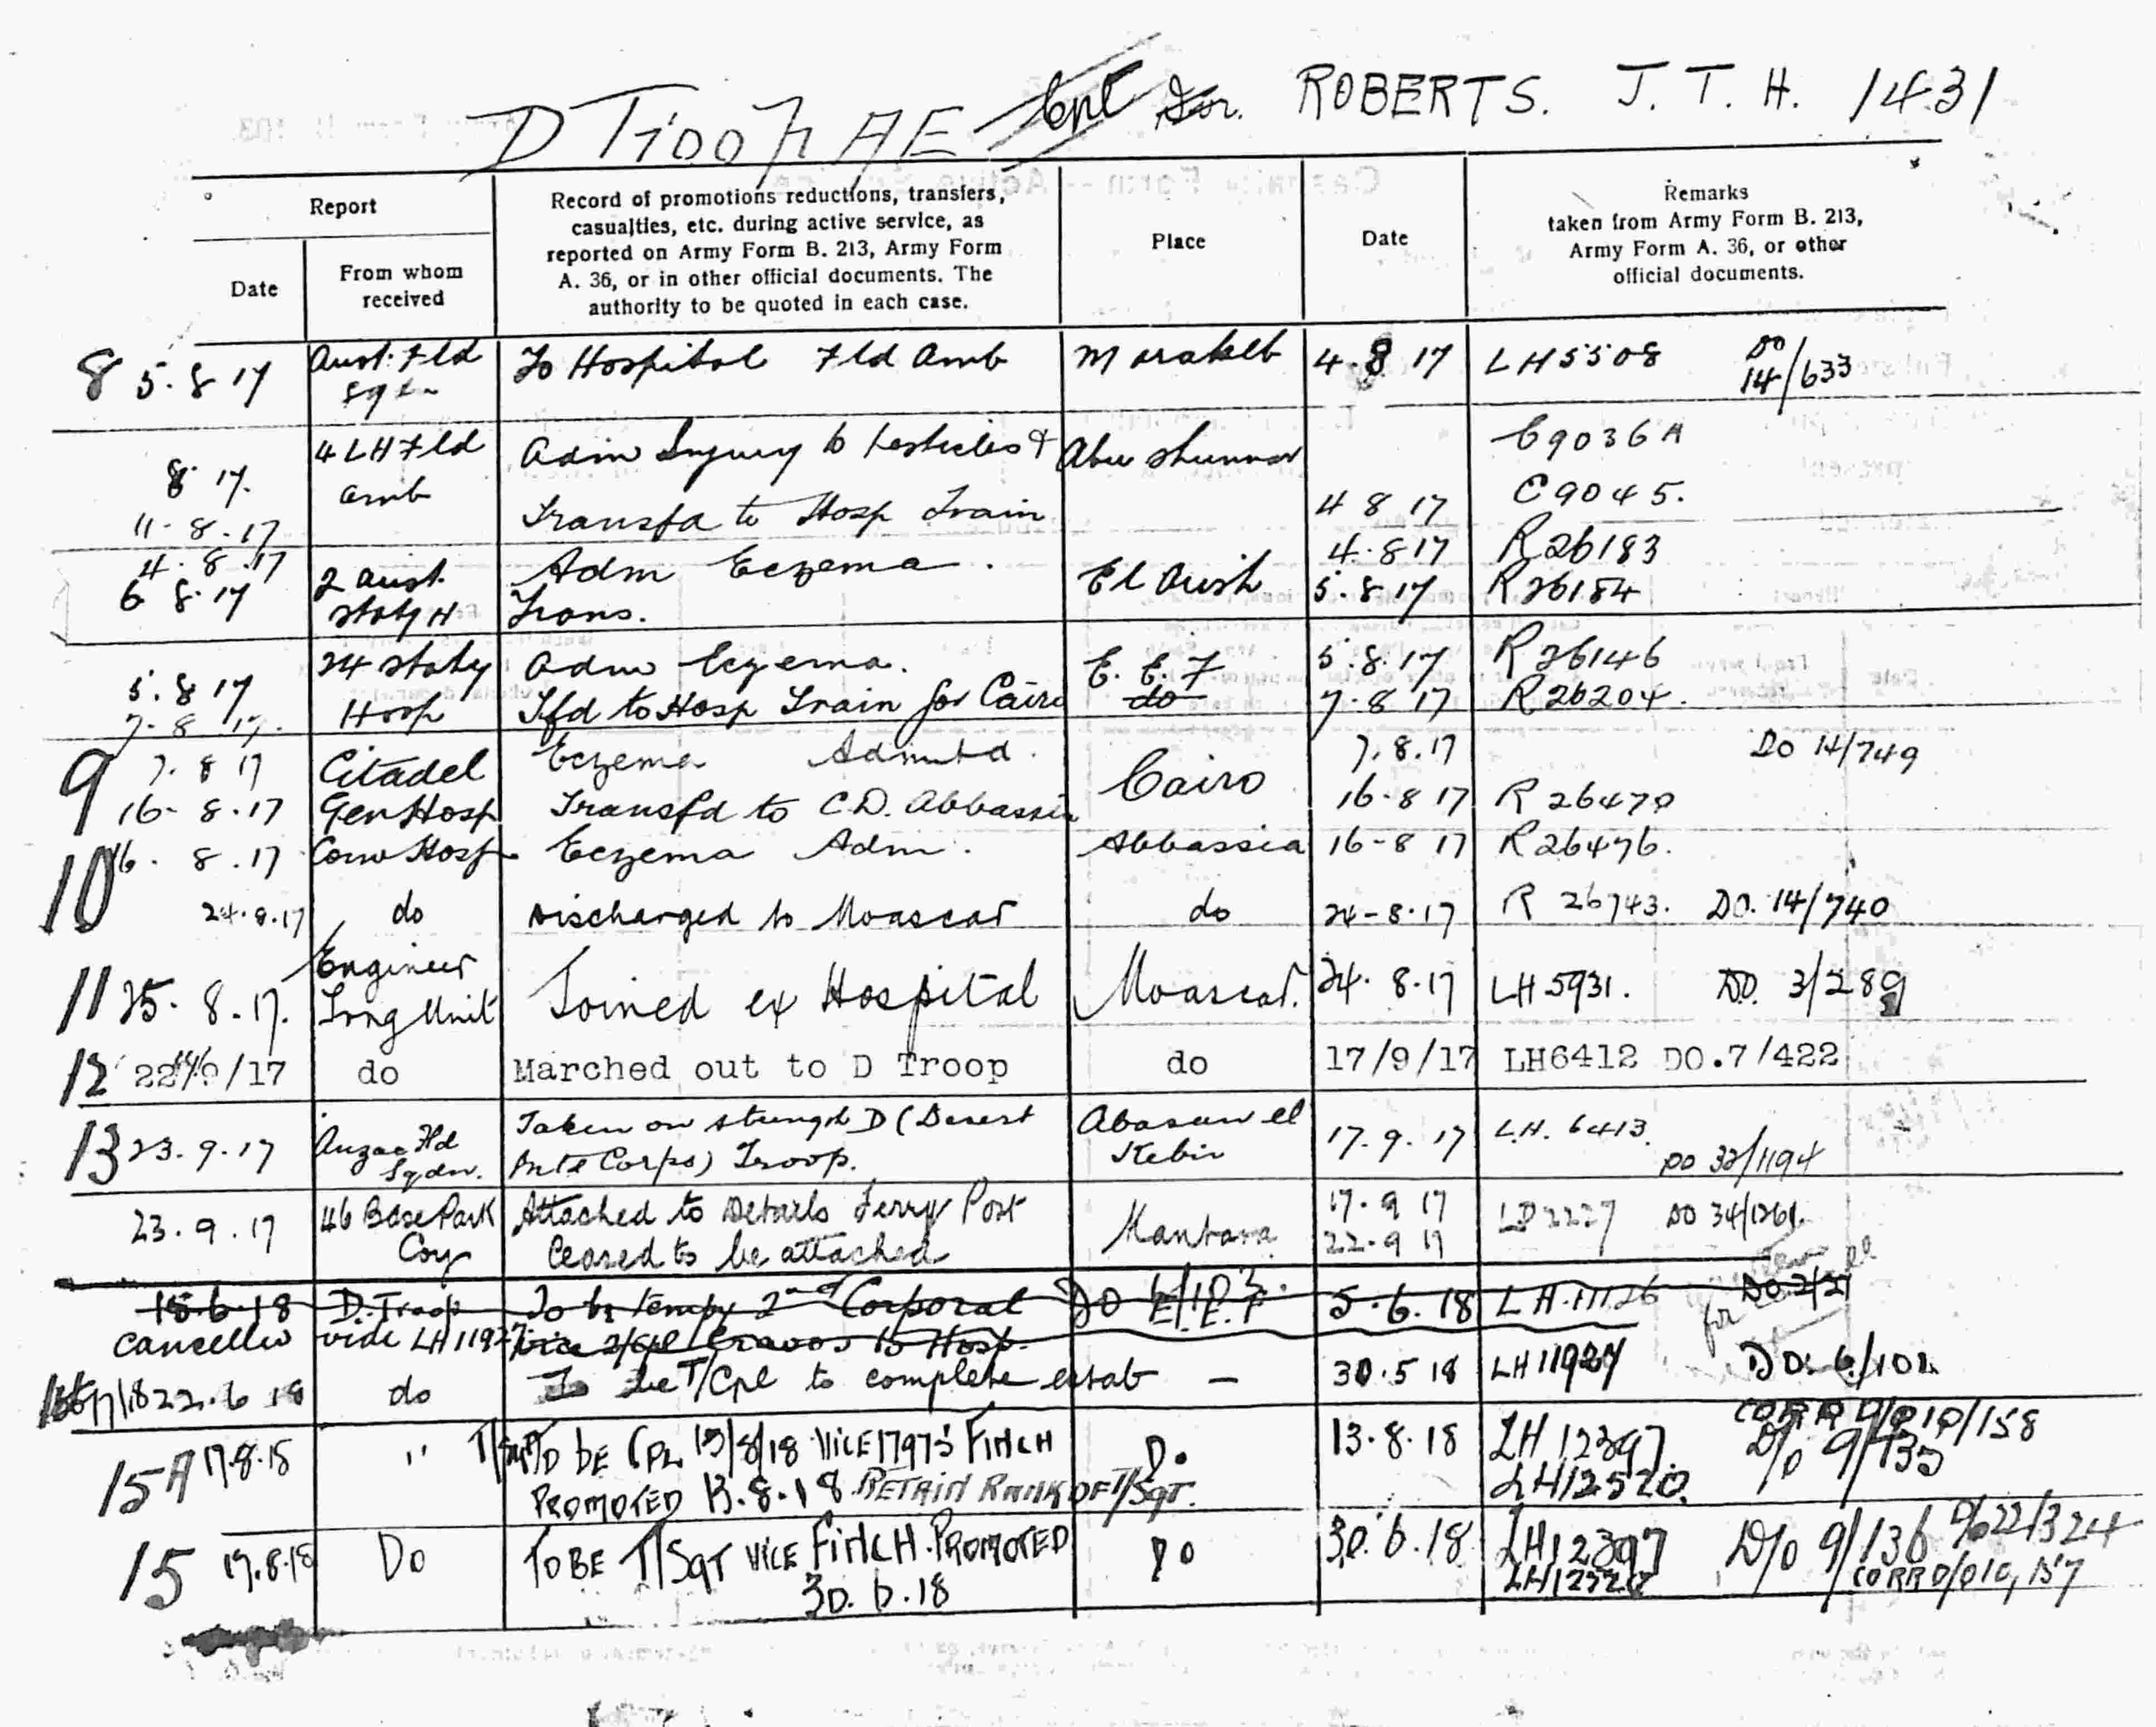 D Troop AE Cpl Spr. ROBERTS. J. T. H. 1431
Report
Date
From whom
received
Record of promotions reductions, transfers,
casualties, etc. during active service, as
reported on Army Form B. 213, Army Form
A. 36, or in other official documents. The
authority to be quoted in each case.
Place
Date
Remarks
taken from Army Form B. 213,
Army Form A. 36, or other
official documents.
8 5.8.17 Aust. Fld To Hospital Fld Amb Marakeb 4.8.17 LH5508 DO
Sqdn 14/633
4 LH Fld Adm Injury to testicles & Abu Shunnar C9036A
8.17. Amb
11.8.17 Transfd to Hosp Train 4 8 17 C9045.
4.8.17 2 Aust. Adm Eczema. El Arish 4.8.17 R26183
6 8.17 Staty H Trans. 5.8.17 R26184
5.8.17 24 Staty Adm Eczema. E.E.F 5.8.17 R26146
7.8.17. Hosp Tfd to Hosp Train for Cairo do 7.8 17 R26204.
9 7.8 17 Citadel Eczema Admitd. Cairo 7.8.17 DO 14/749
16.8.17 Gen Hosp Transfd to C.D. Abbassia 16-8 17 R26470
10 16.8.17 Conv Hosp Eczema Adm. Abbassia 16-8 17 R26476.
24.8.17 do Discharged to Moascar do 24-8.17 R 26743. DO. 14/740
11 25.8.17. Engineer Joined ex Hospital Moascar. 24.8.17 LH 5931. DO. 3/289
Trng Unit
12 22/9/17 do Marched out to D Troop do 17/9/17 LH6412 DO.7/422
13 23.9.17 Anzac Fld Taken on strength D (Desert Abasan el 17.9.17 LH. 6413.
Sqdn. Mtd Corps) Troop. Kebir DO 32/1194
23.9.17 46 Base Park Attached to Details Ferry Post Kantara 17.9 17 LD2227 DO 34/1261.
Coy Ceased to be attached 22.9 17
18.6.18 D. Troop To be tempy 2nd Corporal E.E.F 5.6.18 LH.11126 DO 2/21
Cancelled vide LH 11927 vice 2/Cpl to Hosp.
22.6 18 do To be T/Cpl to complete estab — 30.5 18 LH11927 DO. 6/102
15A 17.8.18 " T/Sgt To be Cpl 13/8/18 vice 17973 FINCH Do 13.8.18 LH 12397. D/o 9/135
CORR D/O 10/158
PROMOTED 13.8.18 RETAIN RANK OF T/SGT. LH12520.
15 17.8.18 Do TO BE T/SGT VICE FINCH. PROMOTED Do 30.6.18 LH12397 D/o 9/136 D/o 22/324
30.6.18 LH12520 CORR D/O 10/157